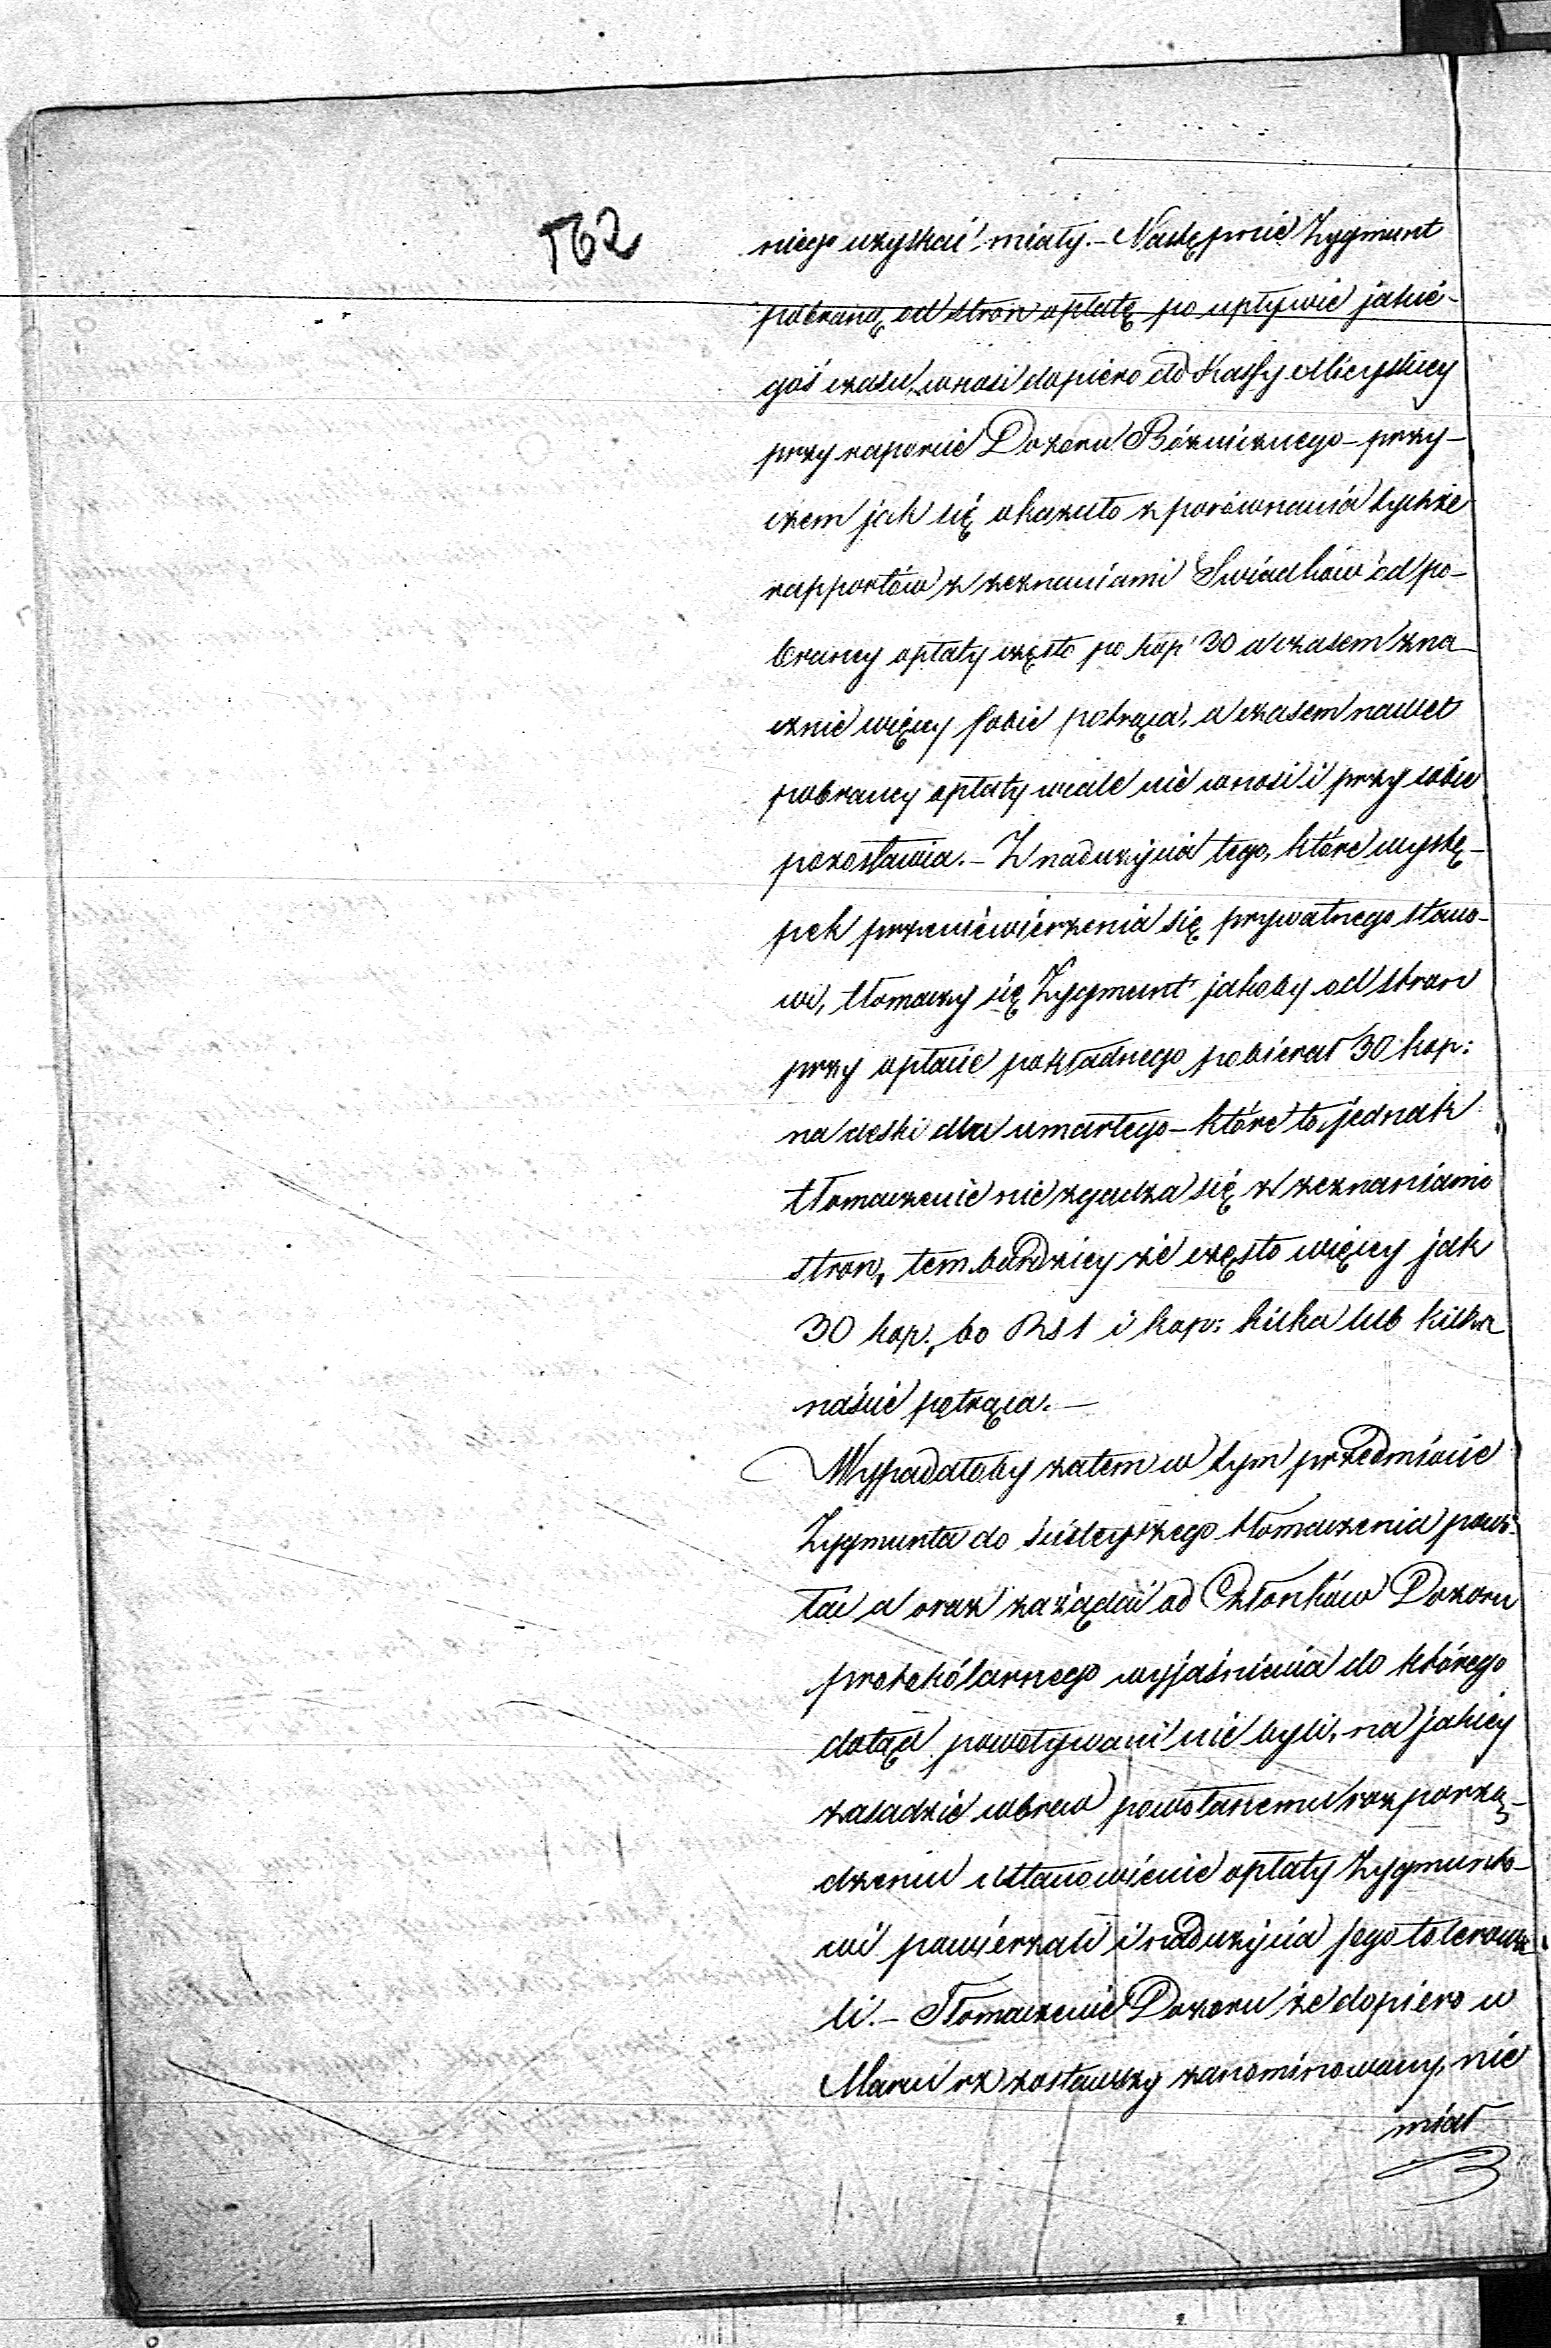 162
niego uzyskać miały. – Następnie Zygmunt
pobraną od stron opłatę po upływie jakie-
goś czasu, wnosi dopiero do Kassy Mieyskiey
przy raporcie Dozoru Bóżniczego – przy-
czem jak się okazało z porównania tychże
rapportów z zeznaniami Swiadków od po-
braney opłaty często po kop 30 a czasem zna-
cznie więcey sobie potrąca, a czasem nawet
pobraney opłaty wcale nie wnosi i przy sobie
pozostawia. – Z nadużycia tego, które wystę-
pek przeniewierzenia się prywatnego stano-
wi, tłomaczy się Zygmunt jakoby od stron
przy opłacie pokładnego pobierał 30 kop:
na deski dla umarłego – które to jednak
tłomaczenie nie zgadza się z zeznaniami
stron, tem bardziey że często więcey jak
30 kop., bo Rs 1 i kop: kilka lub kilka
naście potrąca. –
Wypadałoby zatem w tym przedmiocie
Zygmunta do ściśleyszego tłomaczenia powo-
łać a oraz zażądać od Członków Dozoru
protokólarnego wyjaśnienia do którego
dotąd powoływani nie byli, na jakiey
zasadzie wbrew powołanemu rozporzą-
dzeniu ustanowienie opłaty Zygmunto-
wi powierzali i nadużycia jego tolerowa-
li. – Tłomaczenie Dozoru że dopiero w
Marcu rz zostawszy zanominowany, nie
miał